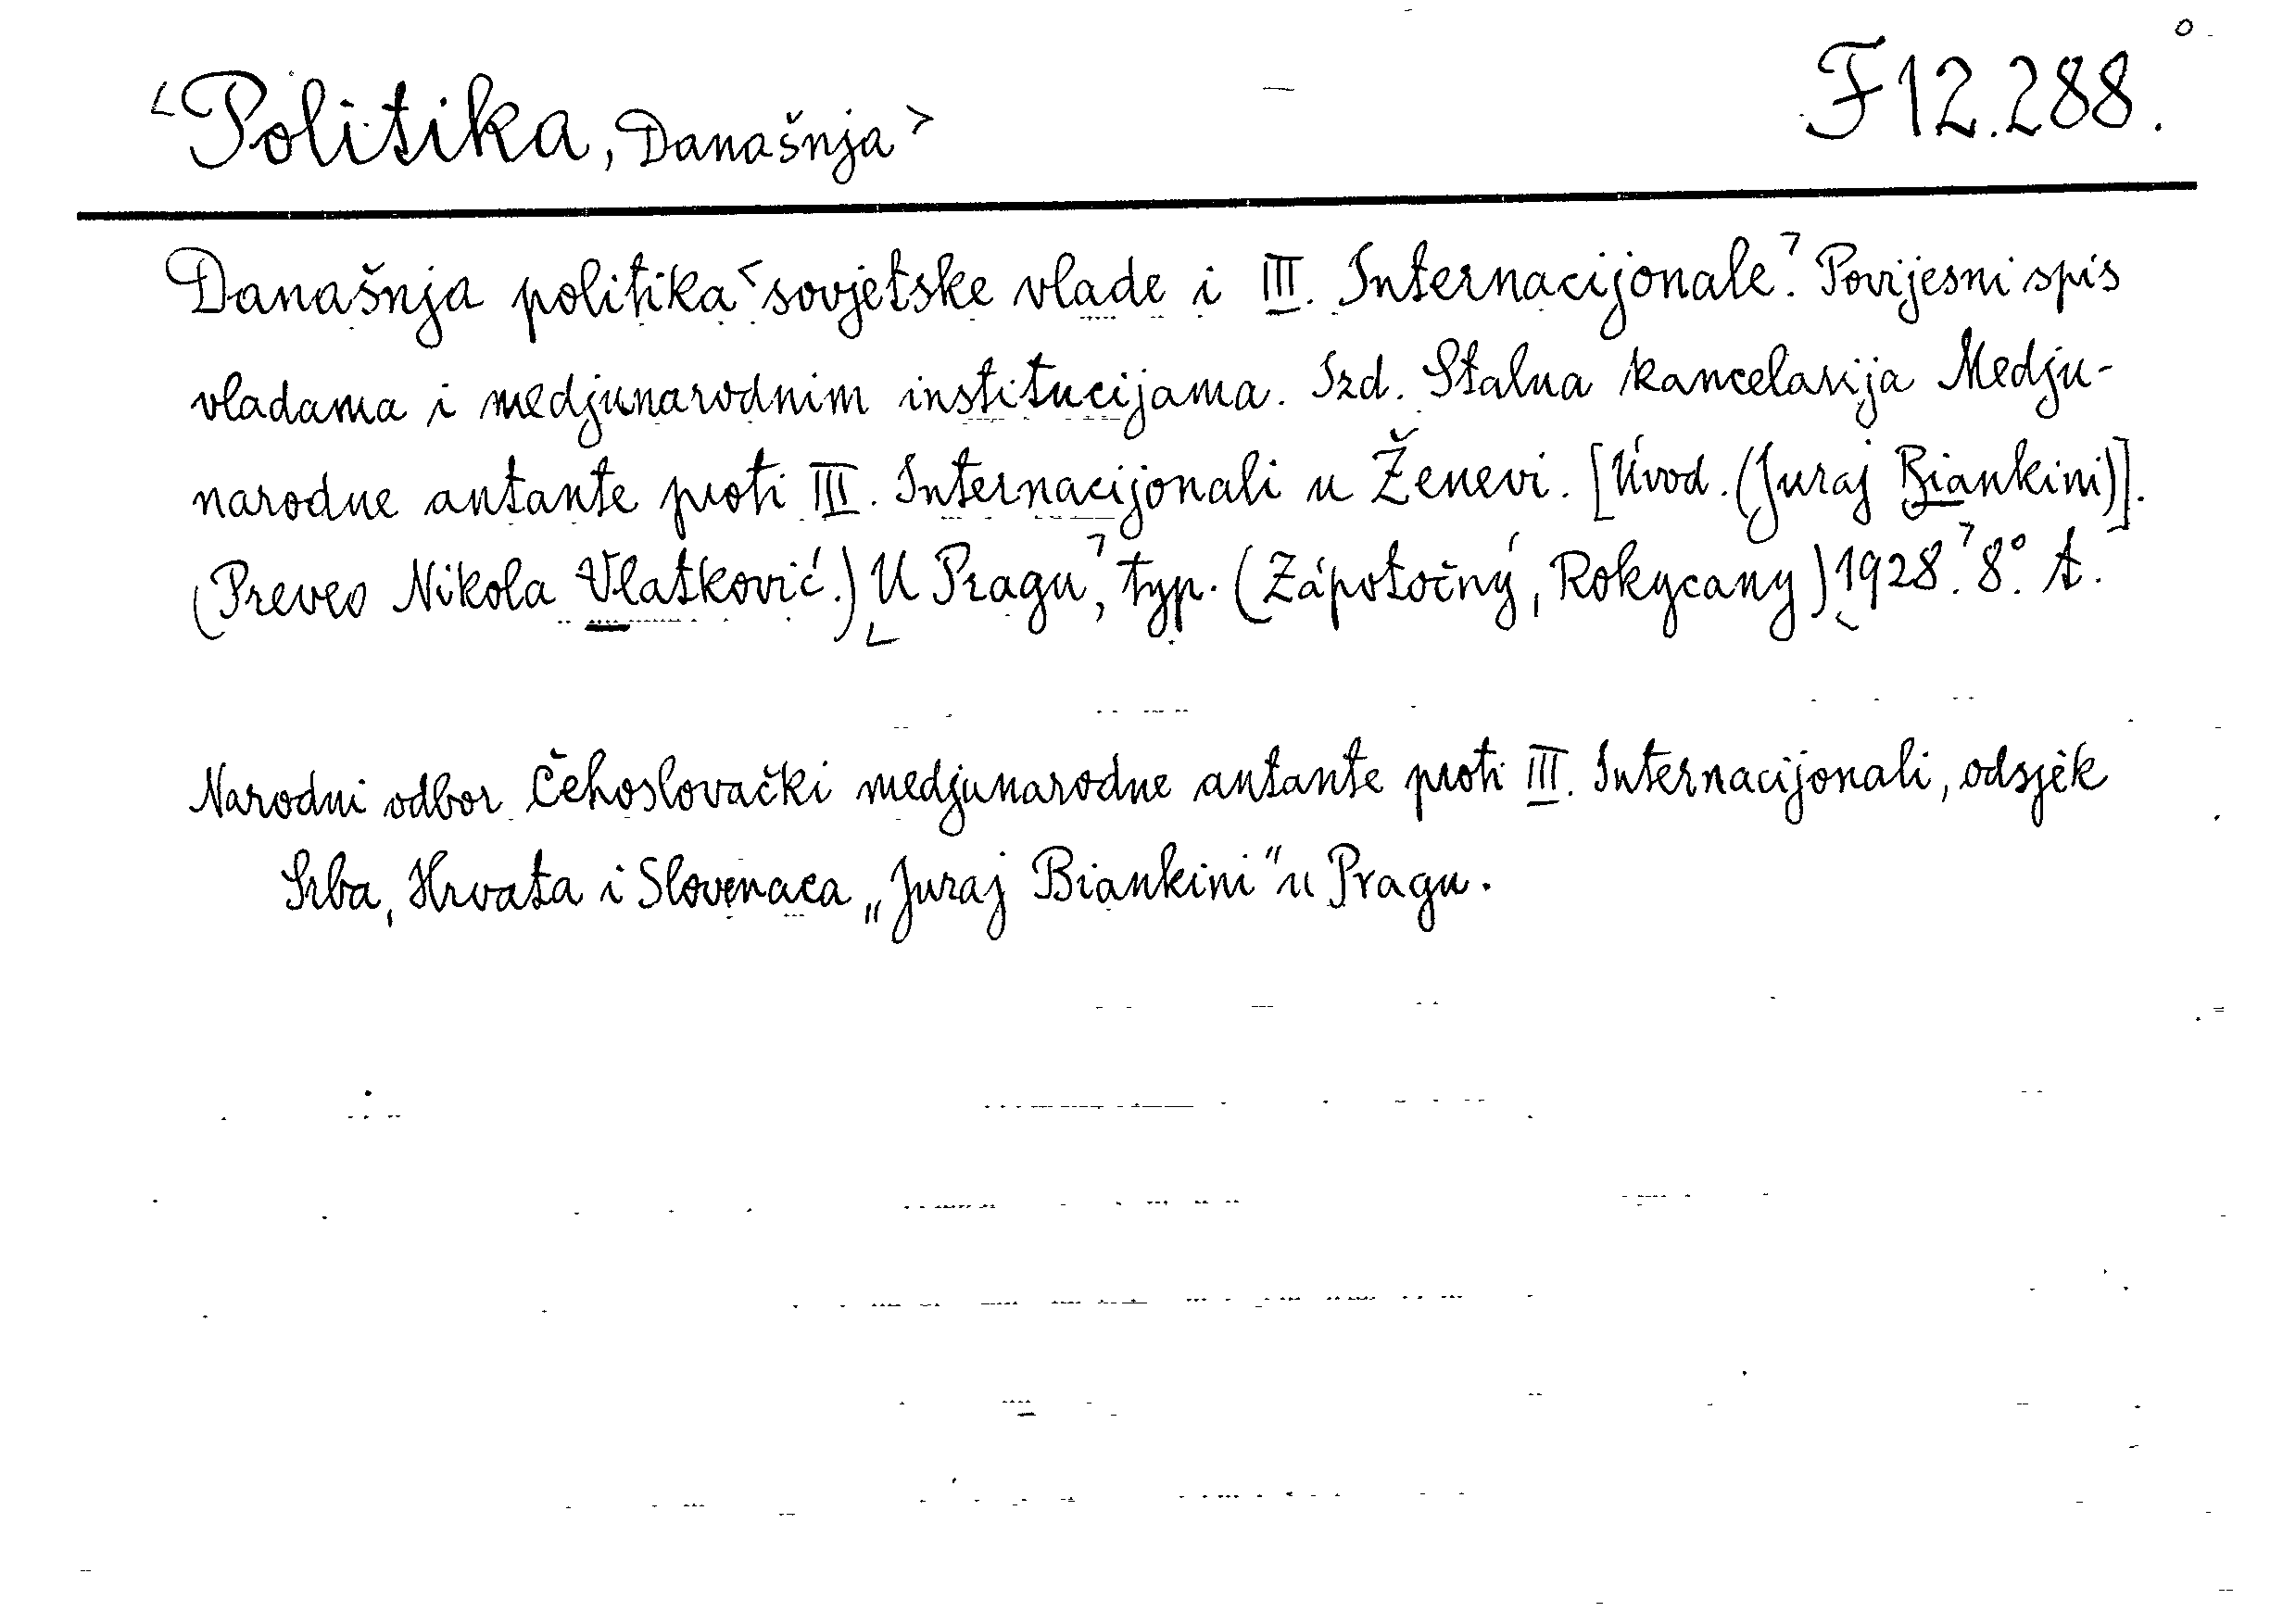 <Politika, Današnja>
F 12.288.
Današnja politika <sovjetske vlade i III. Internacijonale.> Povijesni spis
vladama i medjunarodnim institucijama. Izd. Stalna kancelarija Medju-
narodne antante proti III. Internacijonali u Ženevi. [Úvod. (Juraj Biankini)].
(Preveo Nikola Vlatković.) U Pragu, typ. (Zápotočný, Rokycany) 1928. 8°. A.
Narodni odbor Čehoslovački medjunarodne antante proti III. Internacijonali, odsjek
Srba, Hrvata i Slovenaca „Juraj Biankini" u Pragu.